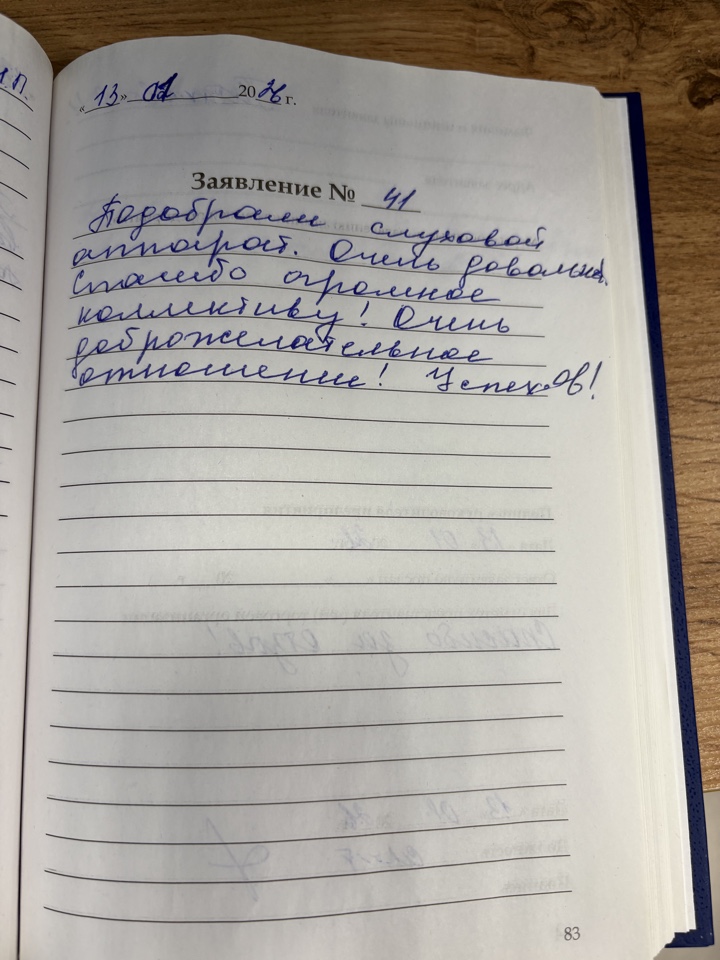 «13» 01 2026 г.
Заявление № 41
Подобрали слуховой
аппарат. Очень довольна.
Спасибо огромное
коллективу! Очень
доброжелательное
отношение! Успехов!
83